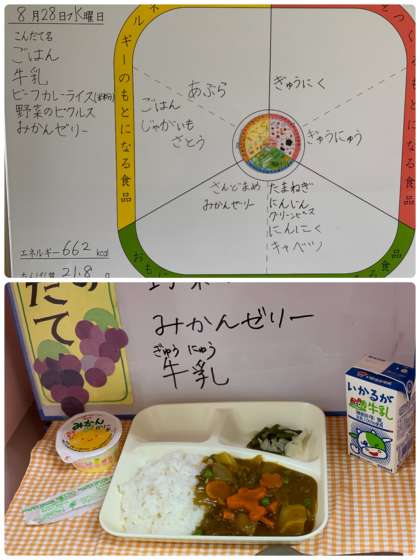 8月28日水曜日
こんだて名
ごはん
牛乳
ビーフカレーライス
野菜のピクルス
みかんゼリー
エネルギー662kcal
21.8g
ギーのもとになる食品
あぶら
ごはん
じゃがいも
さとう
ぎゅうにく
ぎゅうにゅう
さんどまめ
みかんゼリー
たまねぎ
にんじん
グリーンピース
にんにく
キャベツ
もとになる食品
食品
たて
みかんゼリー
ぎゅう にゅう
牛乳
みかん
いかるが
牛乳